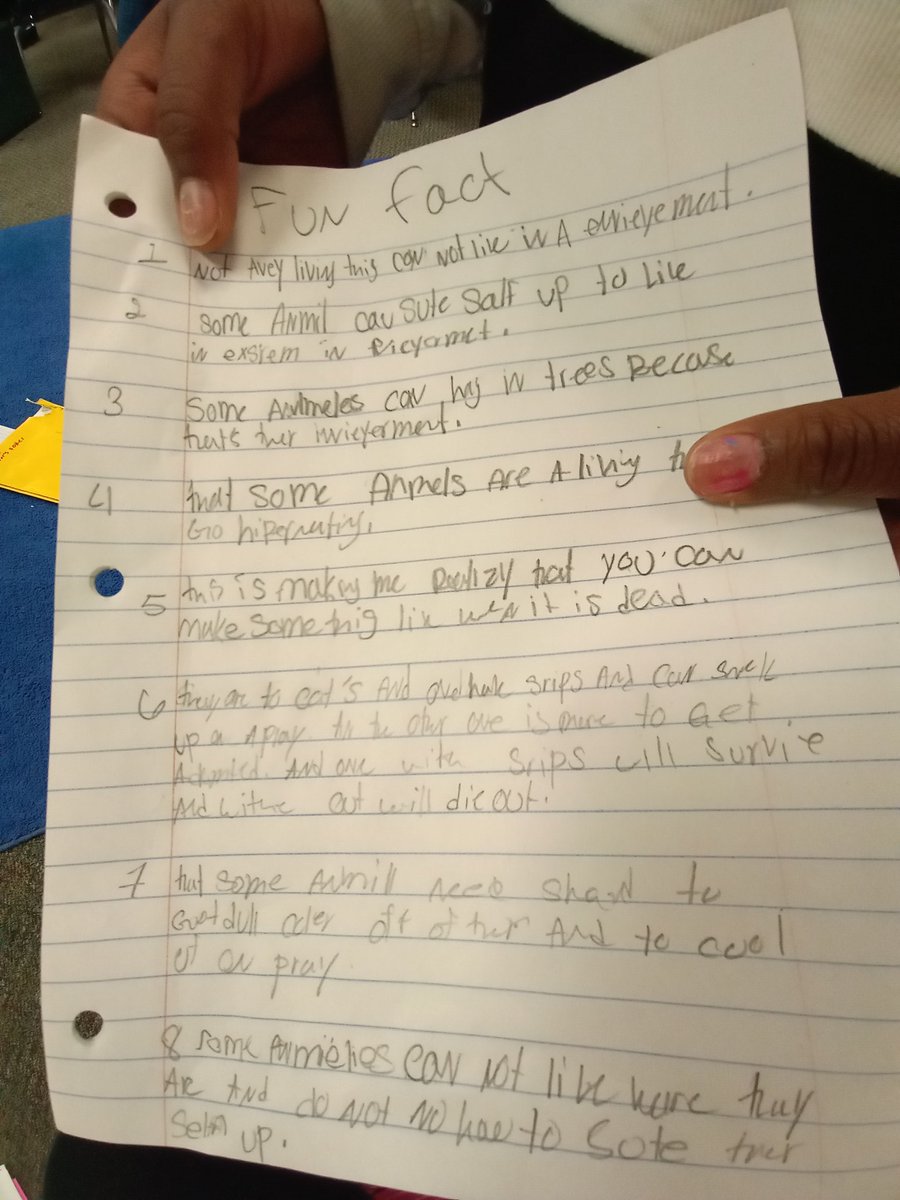 FUN fact
1 Not Avey living this can not live in A envieyement.
2 some Anmil can sute salf up to Live
in exsrem in
3 Some Anmeles can in trees Becase
that's ther invieyerment.
4 that some Anmels Are A living
Go hipernating.
5 this is making me Realizy that you can
make something liv when it is dead.
6 they are to eat's And one have srips And can
up on A pray. the other one is more to Get
And one with srips will survie
And withe out will die out.
7 that some Anmill need to
dull oder off of ther And to cool
on pray.
8 some Anmieles can not live here they
Are And do not no how to sote ther
up.